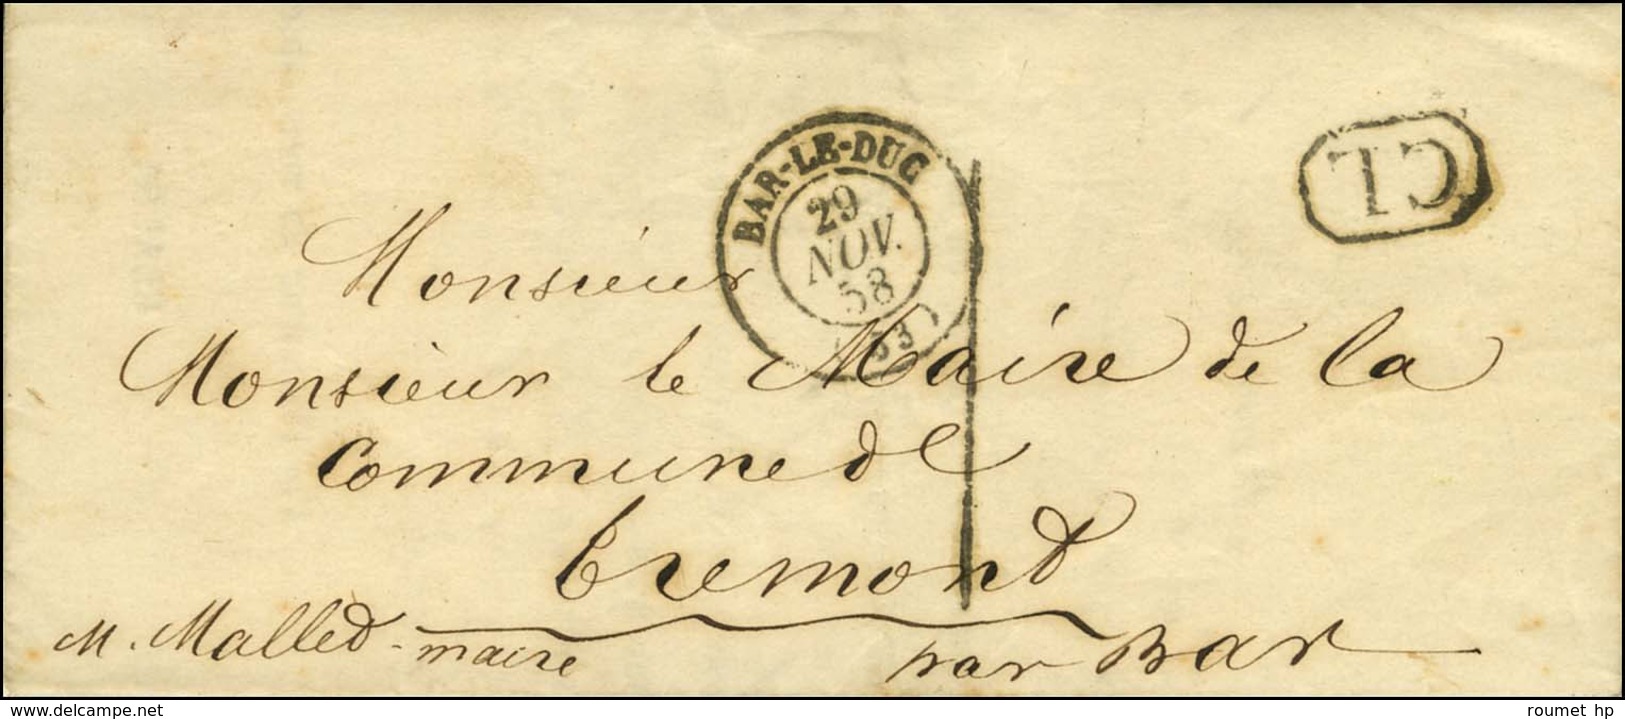 BAR-LE-DUC
29
NOV.
58
(53)
CL
Monsieur
Monsieur le Maire de la
Commune de
tremont
M. Malled - maire
par Bar
www.delcampe.net
roumet hp